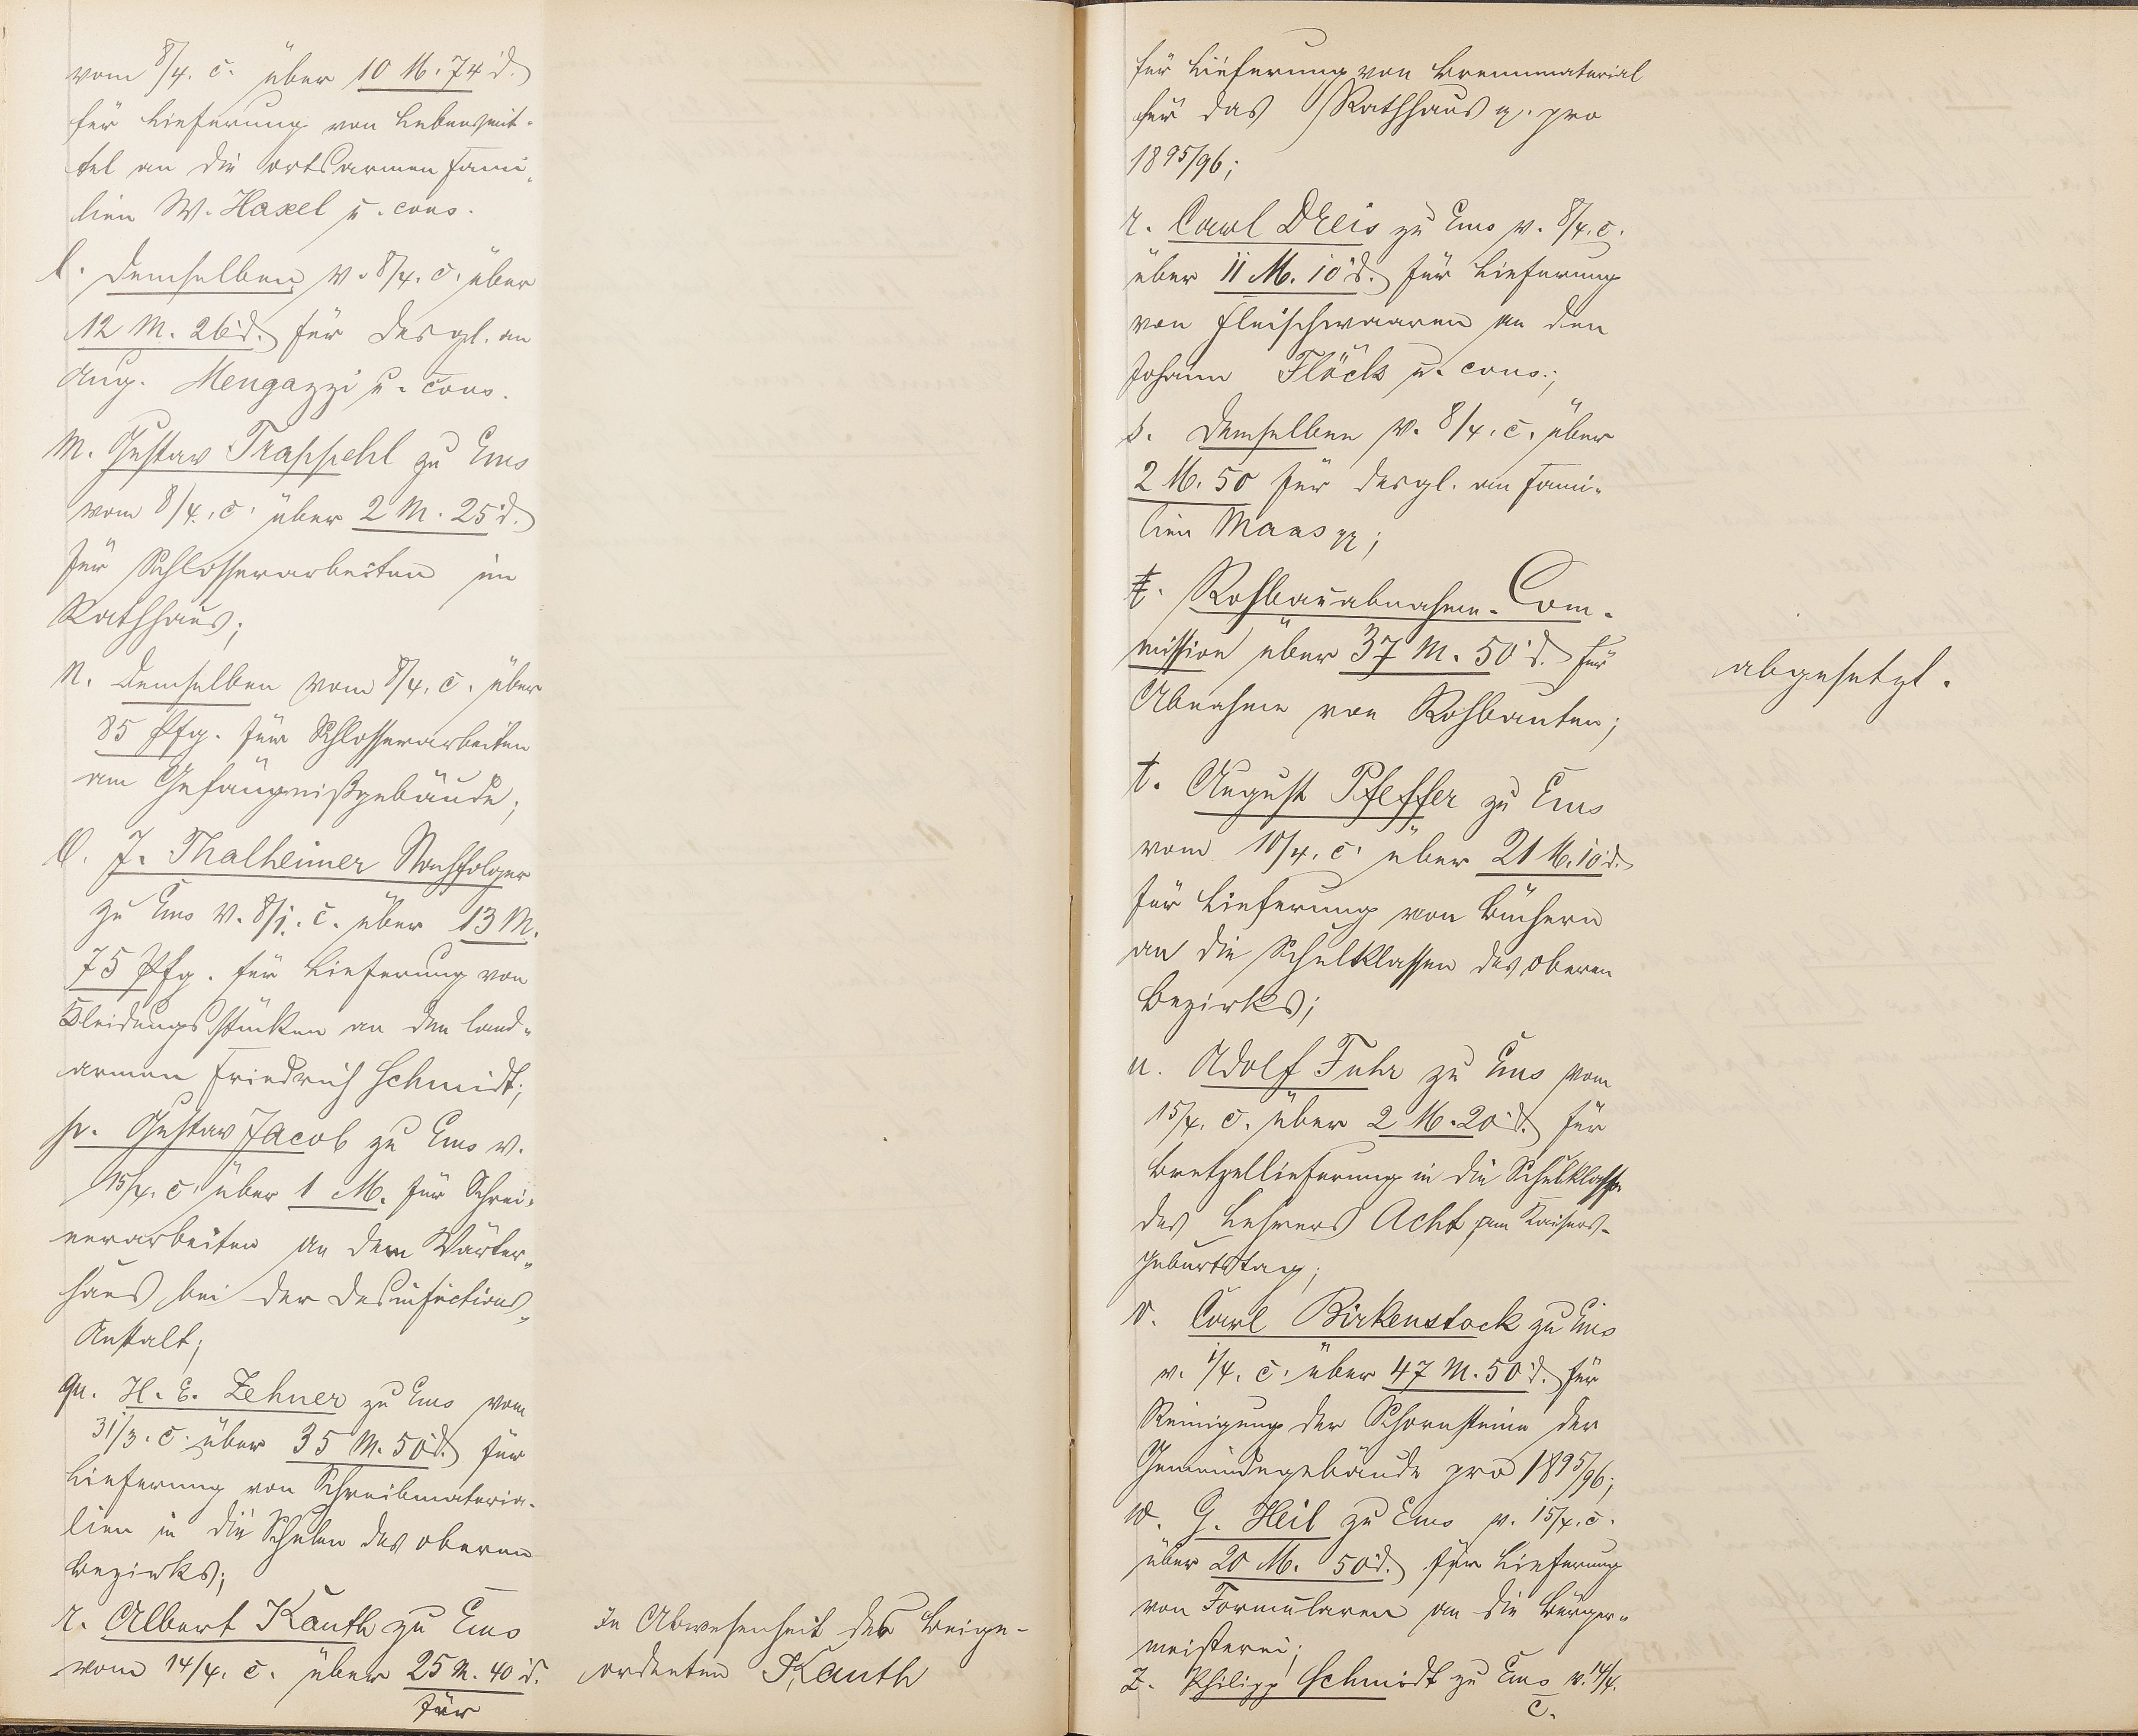 vom 8/4. c. über 10 M. 74 d.
für Lieferung von Lebensmit-
tel an die ortsarmen Fami-
lien W. Haxel u. cons.
l. Demselben v. 8/4. c. über
12 M. 26 d. für desgl. an
Aug. Mengazzi u. cons.
m. Gustav Trappehl zu Ems
vom 8/4. c. über 2 M. 25 d.
für Schlosserarbeiten im
Rathhaus;
n. Demselben vom 8/4. c. über
85 Pfg. für Schlosserarbeiten
am Gefängnißgebäude;
o. J. Thalheimer Nachfolger
zu Ems v. 8/1. c. über 13 M.
75 Pfg. für Lieferung von
Kleidungsstücken an den land-
armen Friedrich Schmidt;
p. Gustav Jacob zu Ems v.
15/4. c. über 1 M. für Schrei-
nerarbeiten an dem Wärter-
haus bei der Desinfections-
Anstalt;
qu. H. E. Zehner zu Ems vom
31/3. c. über 35 M. 50 d. für
Lieferung von Schreibmateria-
lien in die Schulen des oberen
Bezirks;
r. Albert Kauth zu Ems
vom 14/4. c. über 25 M. 40 d.
für
In Abwesenheit des Beige-
ordneten Kauth
für Lieferung von Brennmaterial
für das Rathhaus q. pro
1895/96;
r. Carl Dreis zu Ems v. 8/4. c.
über 11 M. 10 d. für Lieferung
von Fleischwaaren an den
Johann Flöck u. cons.;
s. Demselben v. 8/4. c. über
2 M. 50 für desgl. an Fami-
lien Maas qq;
t. Rohbauabnahme-Com-
mission über 37 M. 50 d. für
Abnahme von Rohbauten;
abgesetzt.
t. August Pfeffer zu Ems
vom 10/4. c. über 21 M. 10 d.
für Lieferung von Büchern
an die Schulklassen des oberen
Bezirks;
u. Adolf Fuhr zu Ems vom
15/4. c. über 2 M. 20 d. für
Bretzellieferung in die Schulklasse
des Lehrers Acht am Kaisers-
geburtstag;
v. Carl Birkenstock zu Ems
v. 1/4. c. über 47 M. 50 d. für
Reinigung der Schornsteine der
Gemeindegebäude pro 1895/96;
w. G. Heil zu Ems v. 15/4. c.
über 20 M. 50 d. für Lieferung
von Formularen an die Bürger-
meisterei;
z. Philipp Schmidt zu Ems v. 14/4.
c.